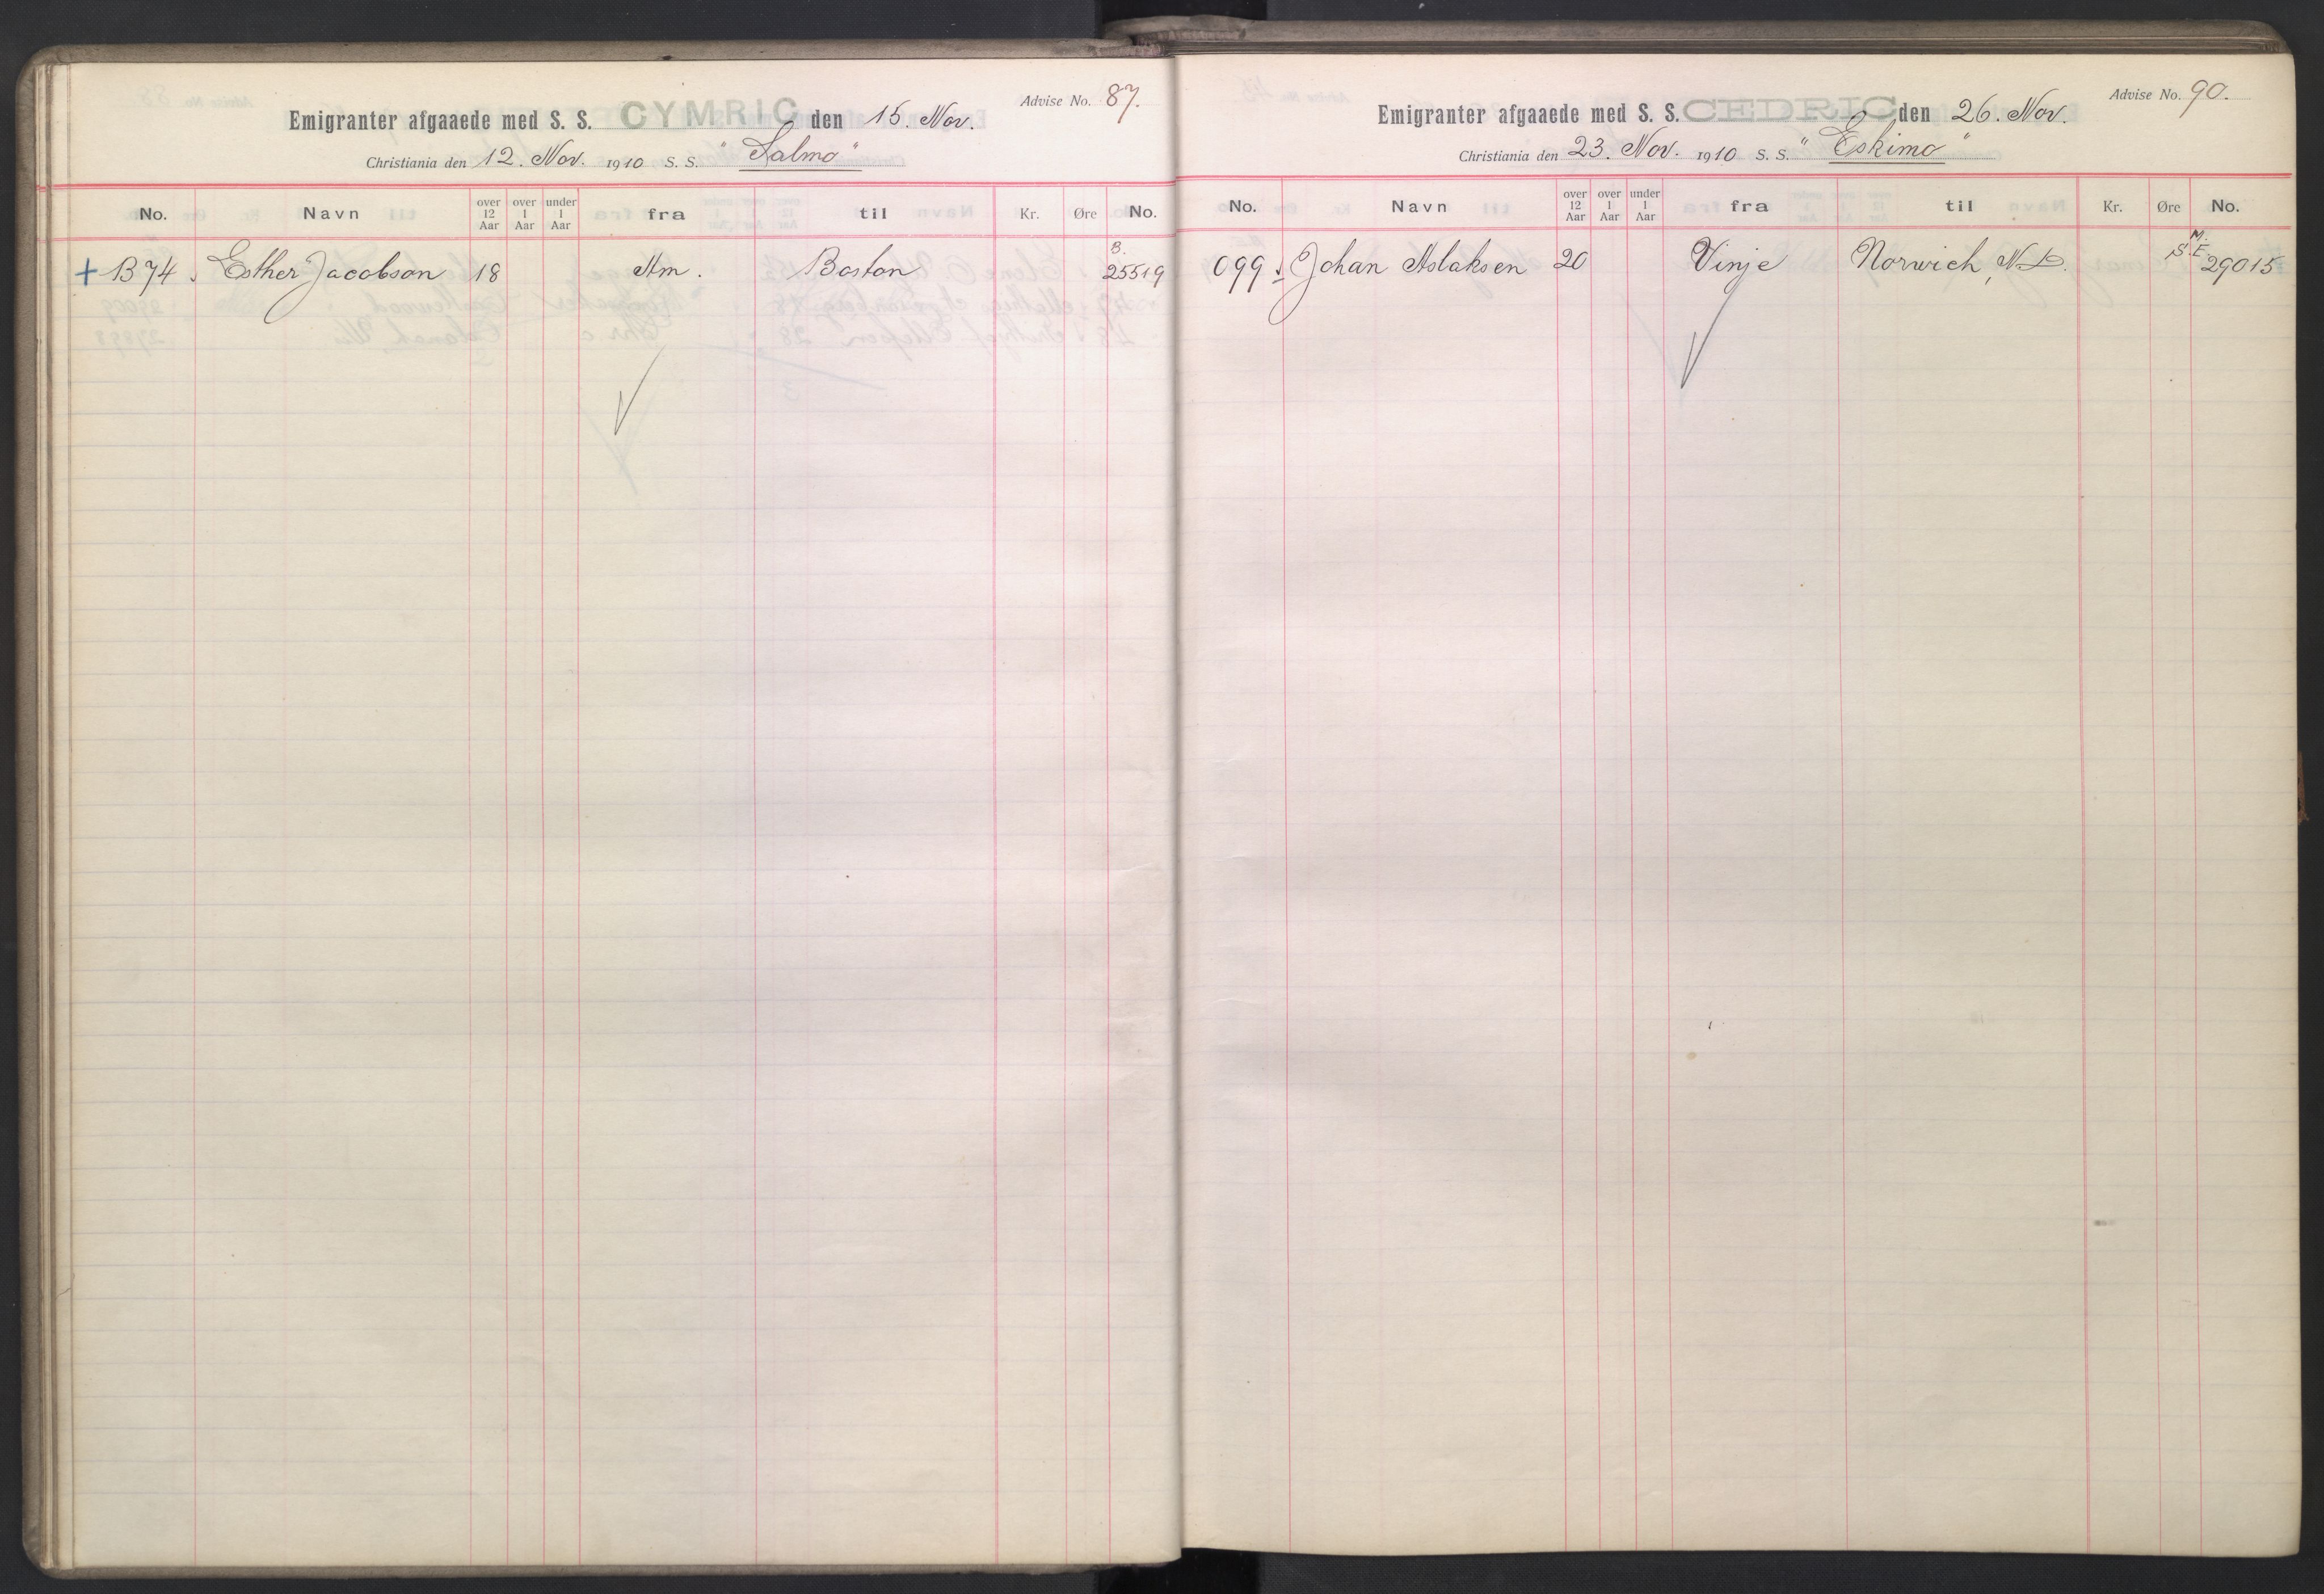 Advise No. 87.
Emigranter afgaaede med S. S. CYMRIC den 15. Nov.
Christiania den 12. Nov. 1910 S. S. "Salmo"
No. Navn over 12 Aar over 1 Aar under 1 Aar fra til Kr. Øre No.
+ B74. Esther Jacobson 18 Am. Boston B. 25519
Advise No. 90.
Emigranter afgaaede med S. S. CEDRIC den 26. Nov.
Christiania den 23. Nov. 1910 S. S. "Eskimo"
No. Navn over 12 Aar over 1 Aar under 1 Aar fra til Kr. Øre No.
099 Johan Aslaksen 20 Vinje Norwich, N.D. S. M. E. 29015